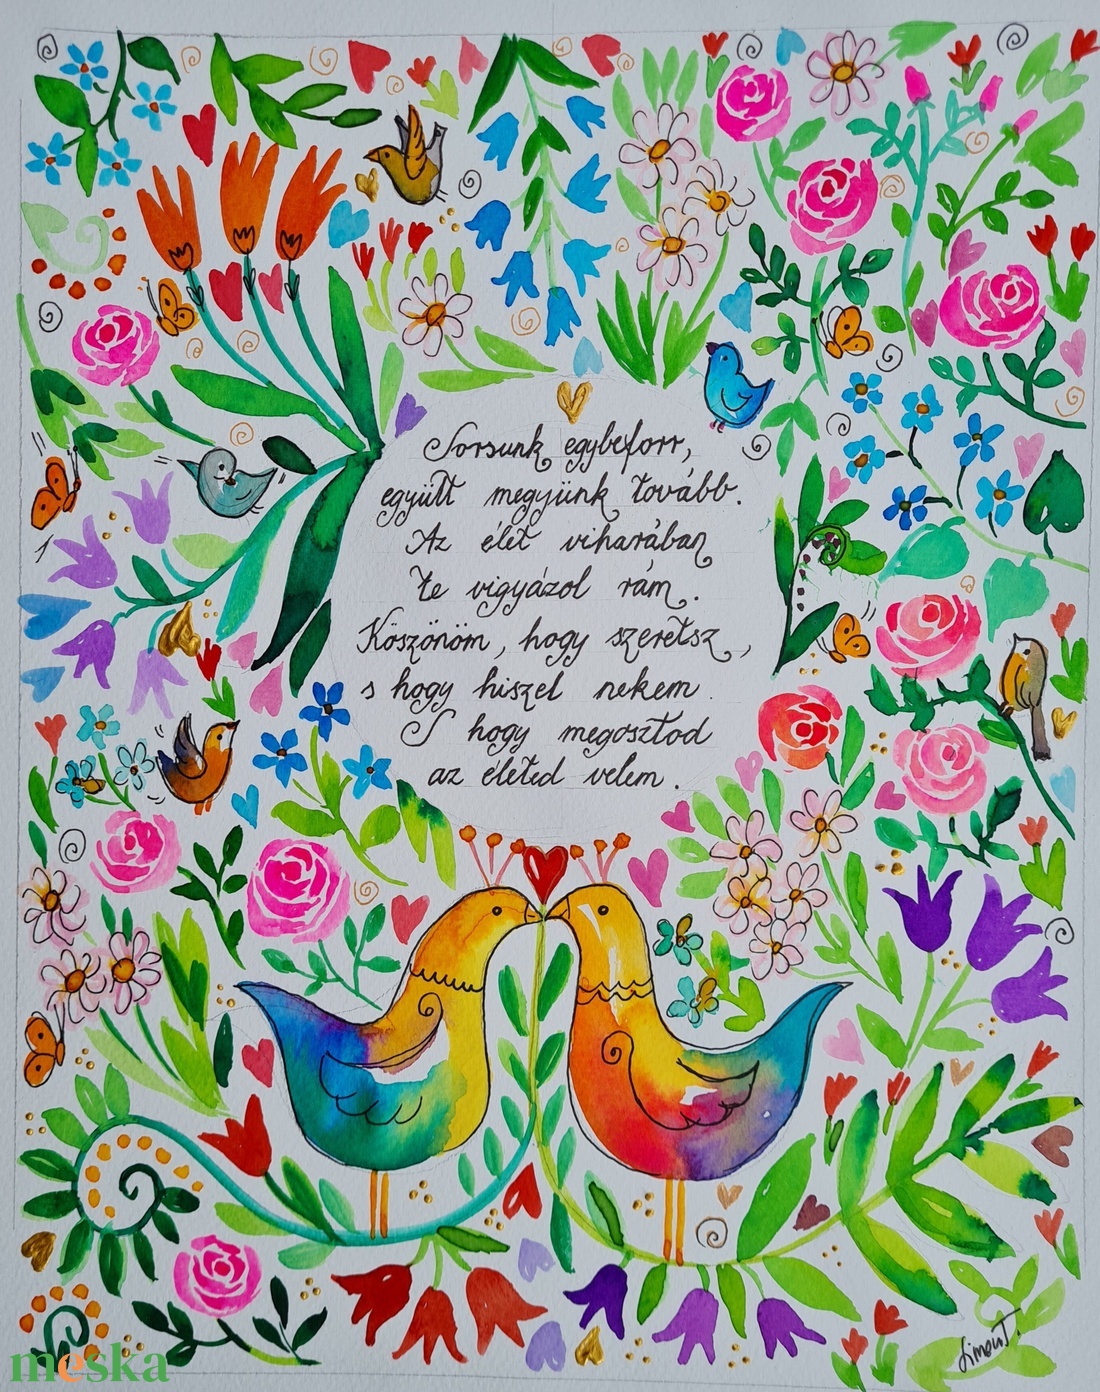 Sorsunk egybeforr,
együtt megyünk tovább.
Az élet viharában
te vigyázol rám.
Köszönöm, hogy szeretsz,
s hogy hiszel nekem.
S hogy megosztod
az életed velem.
meska